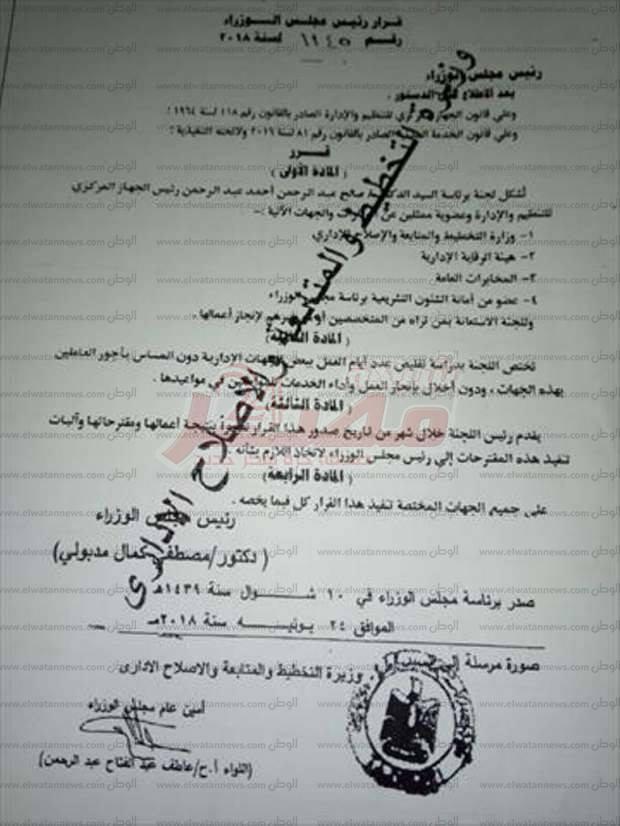 قرار رئيس مجلس الـوزراء
رقم ١٢٤٥ لسنة ٢٠١٨
رئيس مجلس الوزراء
بعد الاطلاع على الدستور ،
وعلى قانون الجهاز المركزي للتنظيم والإدارة الصادر بالقانون رقم ١١٨ لسنة ١٩٦٤
وعلى قانون الخدمة المدنية الصادر بالقانون رقم ٨١ لسنة ٢٠١٦ ولائحته التنفيذية ؛
قـرر
(المادة الأولى)
تشكل لجنة برئاسة السيد الدكتور صالح عبد الرحمن أحمد عبد الرحمن رئيس الجهاز المركزي
للتنظيم والإدارة وعضوية ممثلين عن الوزارات والجهات الآتية :-
١- وزارة التخطيط والمتابعة والإصلاح الإداري
٢- هيئة الرقابة الإدارية
٣- المخابرات العامة
٤- عضو من أمانة الشئون التشريعية برئاسة مجلس الوزراء
وللجنة الاستعانة بمن تراه من المتخصصين أو غيرهم لإنجاز أعمالها .
(المادة الثانية)
تختص اللجنة بدراسة تقليص عدد أيام العمل ببعض الجهات الإدارية دون المساس بأجور العاملين
بهذه الجهات ، ودون أخلال بإنجاز العمل وأداء الخدمات للمواطنين في مواعيدها .
(المادة الثالثة)
يقدم رئيس اللجنة خلال شهر من تاريخ صدور هذا القرار بنتيجة أعمالها ومقترحاتها وآليات
تنفيذ هذه المقترحات إلى رئيس مجلس الوزراء لاتخاذ اللازم بشأنه .
(المادة الرابعة)
على جميع الجهات المختصة تنفيذ هذا القرار كل فيما يخصه .
رئيس مجلس الوزراء
( دكتور/مصطفى كمال مدبولي)
صدر برئاسة مجلس الوزراء في ١٠ شـــوال سنة ١٤٣٩هـ
الموافق ٢٤ يـونيـــه سنة ٢٠١٨مـ
صورة مرسلة إلى السيد وزيرة التخطيط والمتابعة والاصلاح الادارى
أمين عام مجلس الوزراء
(اللواء أ.ح/عاطف عبد الفتاح عبد الرحمن)
وزارة التخطيط والمتابعة والاصلاح الإداري
الوطن www.elwatannews.com